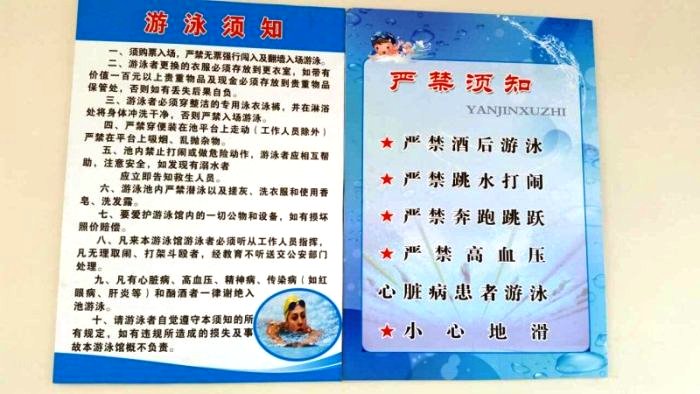 游泳须知
一、须购票入场，严禁无票强行闯入及翻墙入场游泳。
二、游泳者更换的衣服必须存放到更衣室，如带有
价值一百元以上贵重物品及现金必须存放到贵重物品
保管处，否则如有丢失后果自负。
三、游泳者必须穿整洁的专用泳衣泳裤，并在淋浴
处将身体冲洗干净，否则严禁入场游泳。
四、严禁穿便装在池平台上走动（工作人员除外）
严禁在平台上吸烟、乱抛杂物。
五、池内禁止打闹或做危险动作，游泳者应相互帮
助，注意安全，如发现有溺水者
应立即告知救生人员。
六、游泳池内严禁潜泳以及搓灰、洗衣服和使用香
皂、洗发露。
七、要爱护游泳馆内的一切公物和设备，如有损坏
照价赔偿。
八、凡来本游泳馆游泳者必须听从工作人员指挥，
凡无理取闹、打架斗殴者，经教育不听送交公安部门
处理。
九、凡有心脏病、高血压、精神病、传染病（如红
眼病、肝炎等）和酗酒者一律谢绝入
池游泳。
十、请游泳者自觉遵守本须知的所
有规定，如有违规所造成的损失及事
故本游泳馆概不负责。
严禁须知
YANJINXUZHI
★严禁酒后游泳
★严禁跳水打闹
★严禁奔跑跳跃
★严禁高血压
心脏病患者游泳
★小心地滑